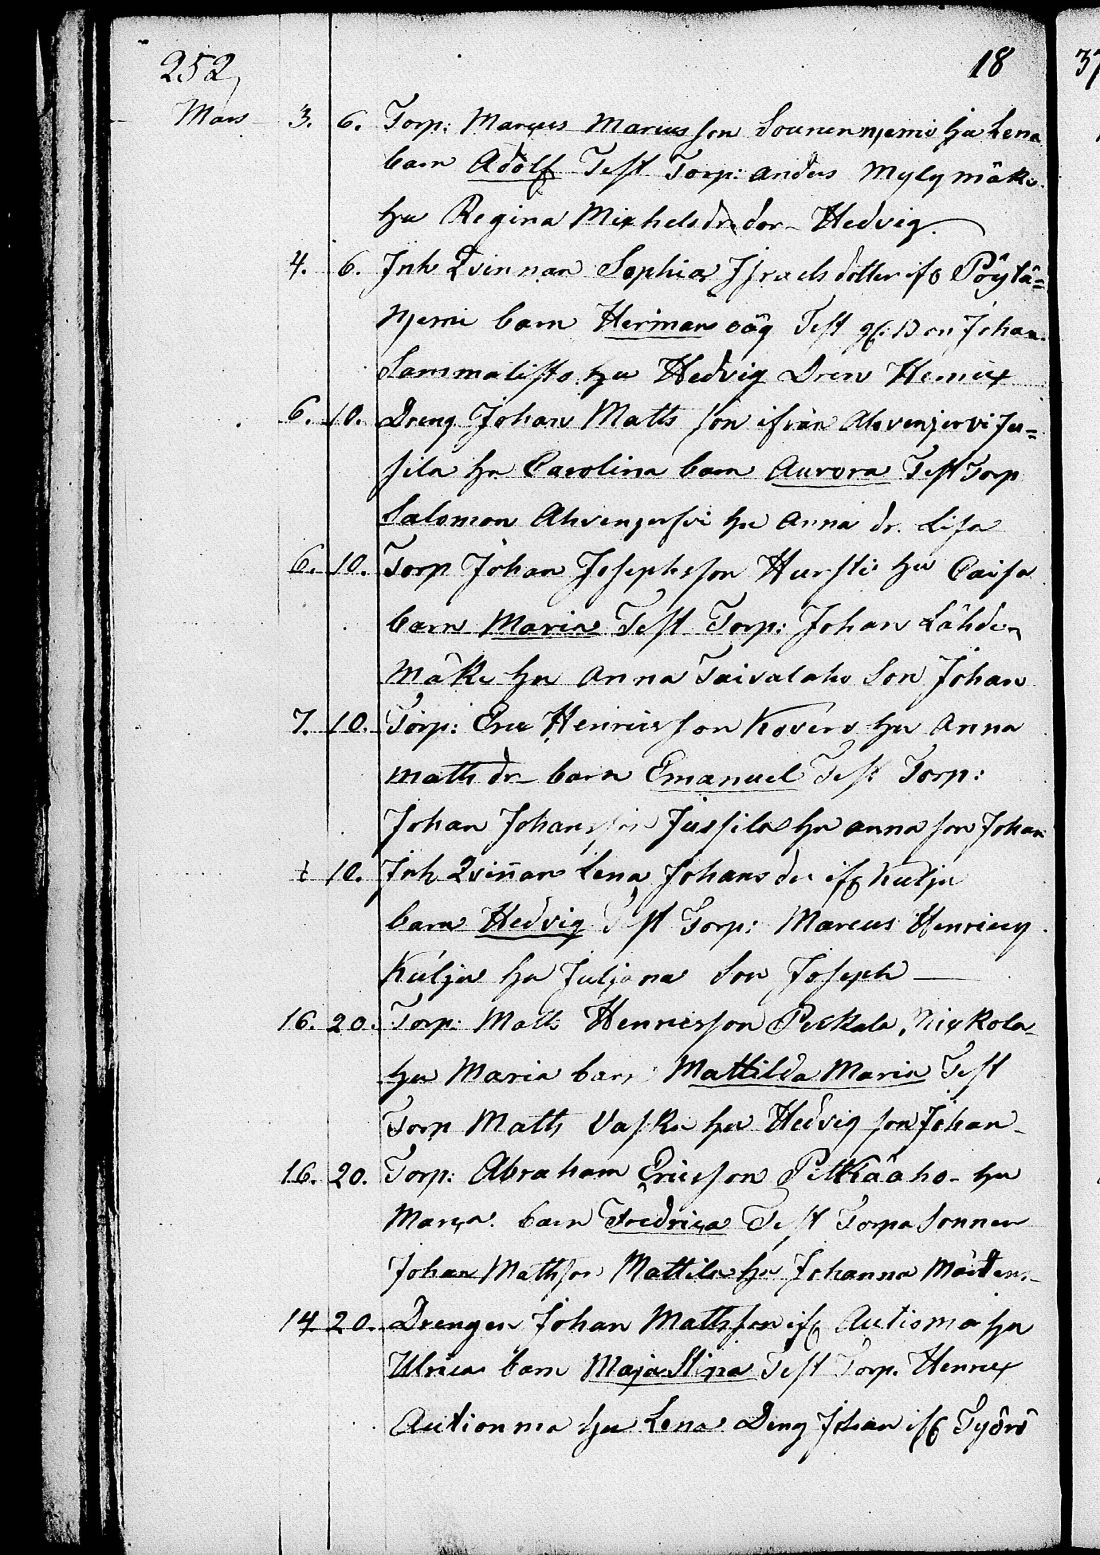 252, 18 37
Mars 3. 6. Torp: Marcus Marcusson Sounenniemi hu Lena
barn Adolf Test Torp: anders Mylymäki
hu Regina Michelsdr dor Hedvig.
4. 6. Inh Qvinnan Sophia Israelsdotter ifr Pöytä=
njemi barn Herman oäg Test Johan
Sammalisto hu Hedvig Dren Henrix
6. 10. Dreng Johan Matts son ifrån Ahvenjervi Ju=
sila hu Carolina barn Aurora Test Torp
Salomon Ahvenjerfvi hu Anna dr. Lisa
6. 10. Torp Johan Josephsson Hursti hu Caisa
barn Maria Test Torp: Johan Lähden
mäki hu Anna Taivalaho Son Johan
7. 10. Torp: Eric Henricsson Kovero hu Anna
maths dr barn Emanuel Test Torp:
Johan Johansson Jussila hu anna son Johan
10. Inh Qvinnan Lena Johans dr ifr Kulju
barn Hedvig Test Torp: Marcus Henricss
Kulju hu Juljana Son Joseph
16. 20. Torp: Matts Henricsson Peskala, Nixkola
hu Maria barn Mattilda Maria Test
Torp Matts Vaski hu Hedvig son Johan
16. 20. Torp: Abraham Ericsson Pitkäaho hu
Maria barn Fredrica Test Torpa Sonnen
Johan Mathson Mattila hu Johanna
14 20. Drengen Johan Mattsson ifr Autioma hu
Ulrica barn Maja Stina Test Torp. Henrix
Autionma hu Lena Deng Johan ifr Työrö